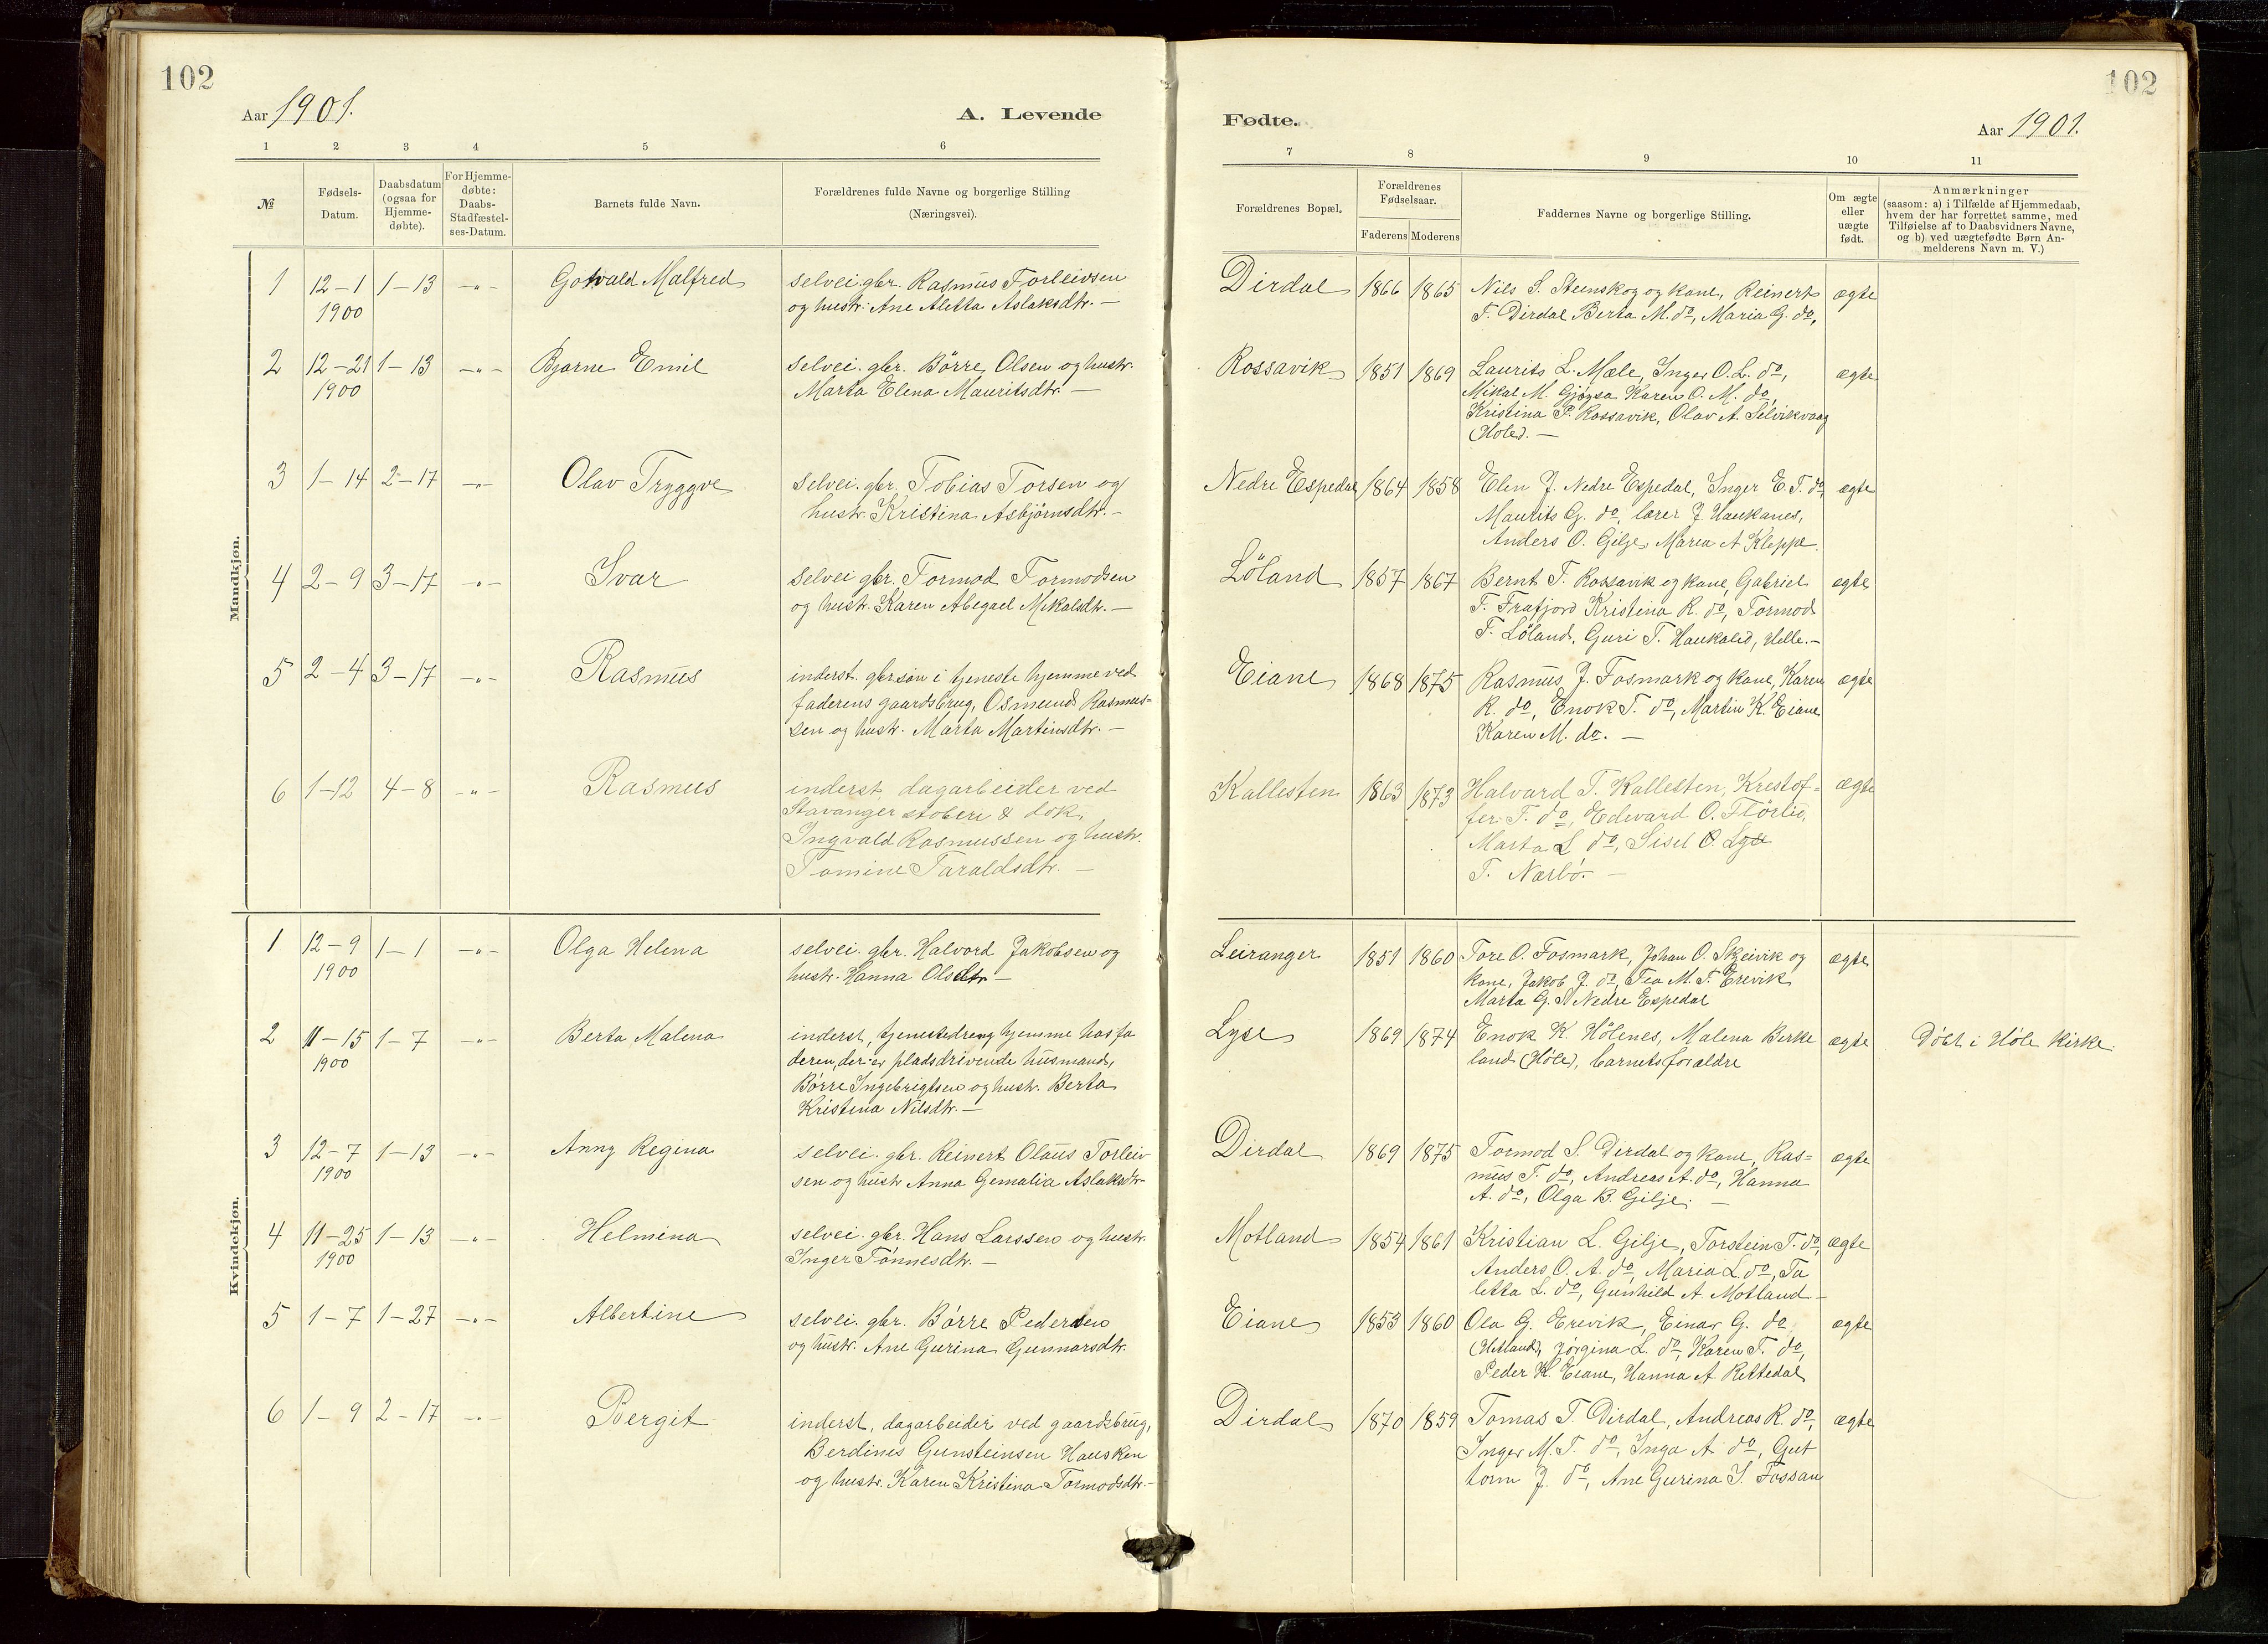 102
102
Aar 1901.
A. Levende
Fødte.
Aar 1901.
1 2 3 4 5 6 7 8 9 10 11
№
Fødsels-
Datum.
Daabsdatum
(ogsaa for
Hjemme-
døbte).
For Hjemme-
døbte:
Daabs-
Stadfæstel-
ses-Datum.
Barnets fulde Navn.
Forældrenes fulde Navne og borgerlige Stilling
(Næringsvei).
Forældrenes Bopæl.
Forældrenes
Fødselsaar.
Faderens Moderens
Faddernes Navne og borgerlige Stilling.
Om ægte
eller
uægte
født.
Anmærkninger
(saasom: a) i Tilfælde af Hjemmedaab,
hvem der har forrettet samme, med
Tilføielse af to Daabsvidners Navne,
og b) ved uægtefødte Børn An-
melderens Navn m. V.)
Mandkjøn.
1 12-1 1-13 -"- Gotvald Malfred selvei. gbr. Rasmus Torleivsen Dirdal 1866 1865 Nils S. Steenskog og kone, Reinert ægte
1900 og hustr. Ane Aletta Aslaksdtr. - T. Dirdal Berta M. do, Maria G. do,
2 12-21 1-13 -"- Bjarne Emil selvei. gbr. Börre Olsen og hustr. Rossavik 1851 1869 Laurits L. Mæle, Inger O. L. do, ægte
1900 Marta Elena Mauritsdtr. - Mikal M. Gjøysa Karen O. M. do,
Kristina P. Rossavik, Olav A. Selvikvaag
(Høle). -
3 1-14 2-17 -"- Olav Tryggve selvei. gbr. Tobias Torsen og Nedre Espedal 1864 1858 Elen J. Nedre Espedal, Inger E. T. do, ægte
hustr. Kristina Asbjörnsdtr. - Maurits G. do, lærer J. Haukanes,
Anders O. Gilje, Maria A Kleppe.
4 2-9 3-17 -"- Ivar selvei gbr. Tormod Tormodsen Löland 1857 1867 Bernt T. Rossavik og kone, Gabriel ægte
og hustr. Karen Abegael Mikalsdtr. - T. Frafjord Kristina R. do, Tormod
T. Löland, Guri T. Haukalid, Helle. -
5 2-4 3-17 -"- Rasmus inderst. gbrsön i tjeneste hjemme ved Eiane 1868 1875 Rasmus J. Fosmark og kone, Karen ægte
faderens gaardsbrug, Osmund Rasmus= R. do, Enok T. do, Martin K. Eiane
sen og hustr. Marta Martinsdtr. - Karen M. do. -
6 1-12 4-8 -"- Rasmus inderst, dagarbeider ved Kallesten 1863 1873 Halvard T. Kallesten, Kristof= ægte
Stavanger stöberi & dok, fer T. do, Edevard O. Flörlid,
Ingvald Rasmussen og hustr. Marta L do, Sisel O. Lyse
Tomine Taraldsdtr. - T. Nærbö. -
Kvindekjøn.
1 12-9 1-1 -"- Olga Helena selvei. gbr. Halvard Jakobsen og Leiranger 1851 1860 Tore O. Fosmark, Johan O. Skjeivik og ægte
1900 hustr. Hanna Olsdtr - kone, Jakob J. do, Tea M. T. Erevik
Marta G. S. Nedre Espedal
2 11-15 1-7 -"- Berta Malena inderst, tjenestedreng hjemme hos fa Lyse 1869 1874 Enok K. Hölenes, Malena Birke ægte Döbt i Höle Kirke.
1900 deren, der er pladsdrivende husmand, land (Höle), barnets forældre
Börre Ingebrigtsen og hustr. Berta
Kristina Nilsdtr. -
3 12-7 1-13 -"- Anny Regina selvei. gbr. Reinert Olaus Torleiv Dirdal 1869 1875 Tormod S. Dirdal og kone, Ras= ægte
1900 sen og hustr Anna Gemalia Aslaksdtr- mus T. do, Andreas A. do, Hanna
A. do, Olga B. Gilje. -
4 11-25 1-13 -"- Helmina selvei. gbr. Hans Larssen og hustr. Motland 1854 1861 Kristian L. Gilje, Torstein T. do, ægte
1900 Inger Tönnesdtr. - Anders O. A. do, Maria L. do, Ta
letta L. do, Gunhild A Motland -
5 1-7 1-27 -"- Albertine selvei. gbr. Börre Pedersen Eiane 1853 1860 Ola G. Erevik, Einar G. do ægte
og hustr. Ane Gurina Gunnarsdtr. (Hetland), Jörgina L. do, Karen T. do,
Peder K. Eiane, Hanna A. Rettedal
6 1-9 2-17 -"- Bergit inderst, dagarbeider ved gaardsbrug, Dirdal 1870 1859 Tomas T. Dirdal, Andreas R. do, ægte
Berdines Gunsteinsen Hausken Inger M. T. do, Inga A do, Gut
og hustr. Karen Kristina Tormodsdtr. - torm J. do, Ane Gurina S. Fossan